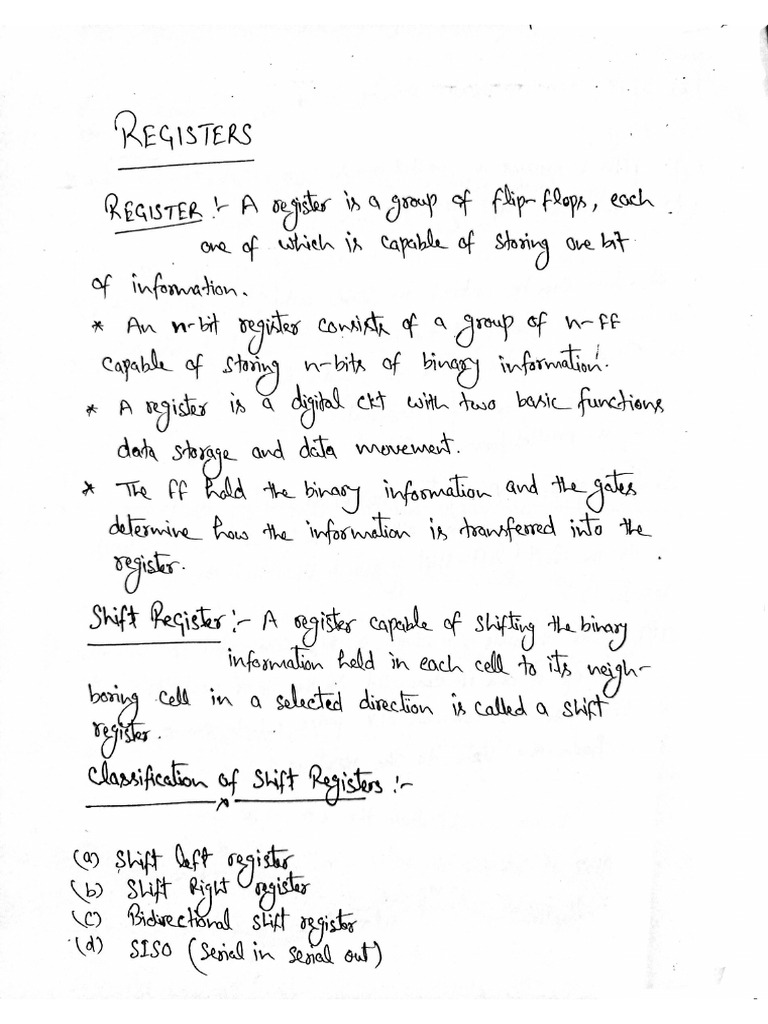 REGISTERS
REGISTER :- A register is a group of flip-flops, each
one of which is capable of storing one bit
of information.
* An n-bit register consists of a group of n-ff
capable of storing n-bits of binary information.
* A register is a digital ckt with two basic functions
data storage and data movement.
* The ff hold the binary information and the gates
determine how the information is transferred into the
register.
Shift Register :- A register capable of shifting the binary
information held in each cell to its neigh-
boring cell in a selected direction is called a shift
register.
Classification of Shift Registers :-
(a) Shift left register
(b) Shift Right register
(c) Bidirectional shift register
(d) SISO (Serial in serial out)